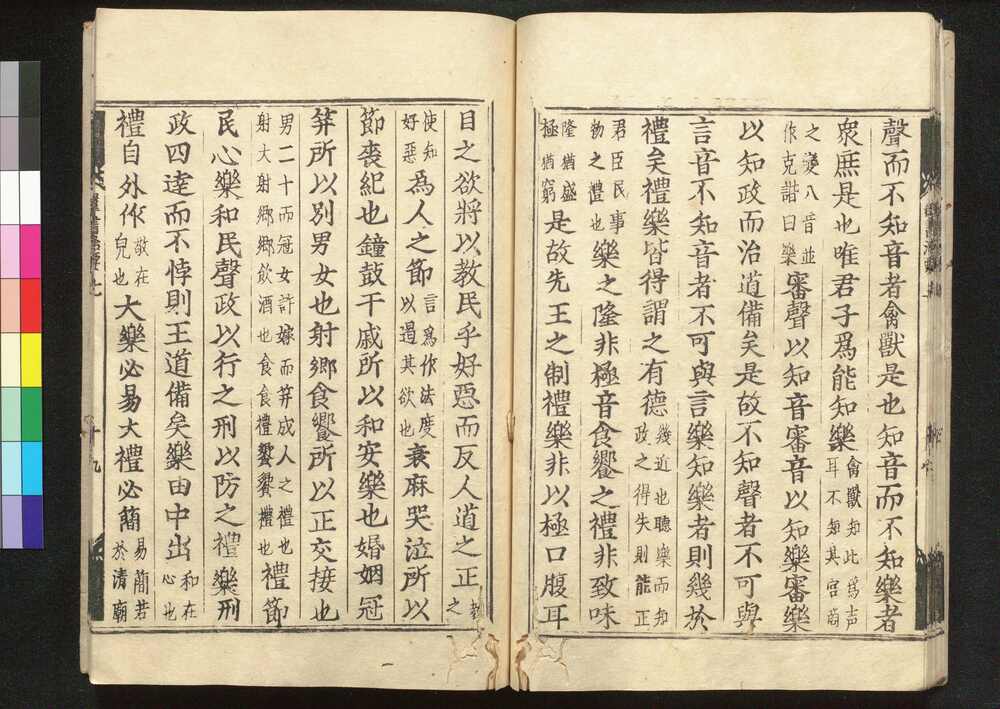 聲而不知音者禽獸是也知音而不知樂者
衆庶是也唯君子爲能知樂禽獸知此爲声耳不知其宮商
之變八音並作克諧曰樂審聲以知音審音以知樂審樂
以知政而治道備矣是故不知聲者不可與
言音不知音者不可與言樂知樂者則幾於
禮矣禮樂皆得謂之有德幾近也聽樂而知政之得失則能正
君臣民事物之禮也樂之隆非極音食饗之禮非致味
隆猶盛極猶窮是故先王之制禮樂非以極口腹耳
目之欲將以教民乎好惡而反人道之正教之
使知好惡爲人之節言爲作法度以遏其欲也衰麻哭泣所以
節喪紀也鐘鼓干戚所以和安樂也婚姻冠
笄所以別男女也射鄉食饗所以正交接也
男二十而冠女許嫁而笄成人之禮也射大射鄉鄉飲酒也食食禮饗饗禮也禮節
民心樂和民聲政以行之刑以防之禮樂刑
政四達而不悖則王道備矣樂由中出和在心也
禮自外作敬在皃也大樂必易大禮必簡易簡若於清廟
十九